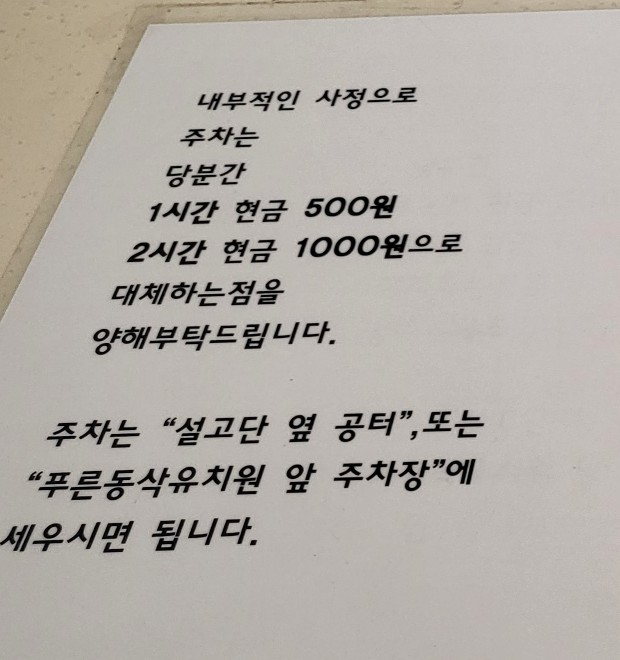 내부적인 사정으로
주차는
당분간
1시간 현금 500원
2시간 현금 1000원으로
대체하는점을
양해부탁드립니다.
주차는 “설고단 옆 공터”,또는
“푸른동삭유치원 앞 주차장”에
세우시면 됩니다.